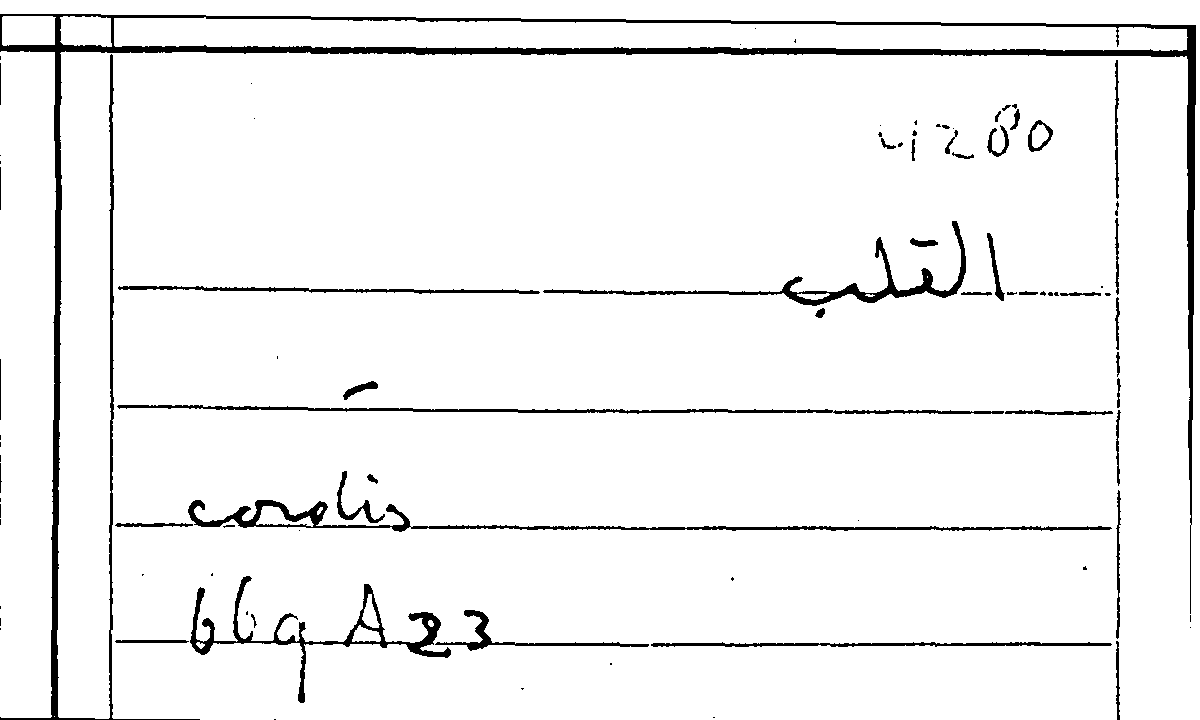 4280
القلب
cordis
669 A23